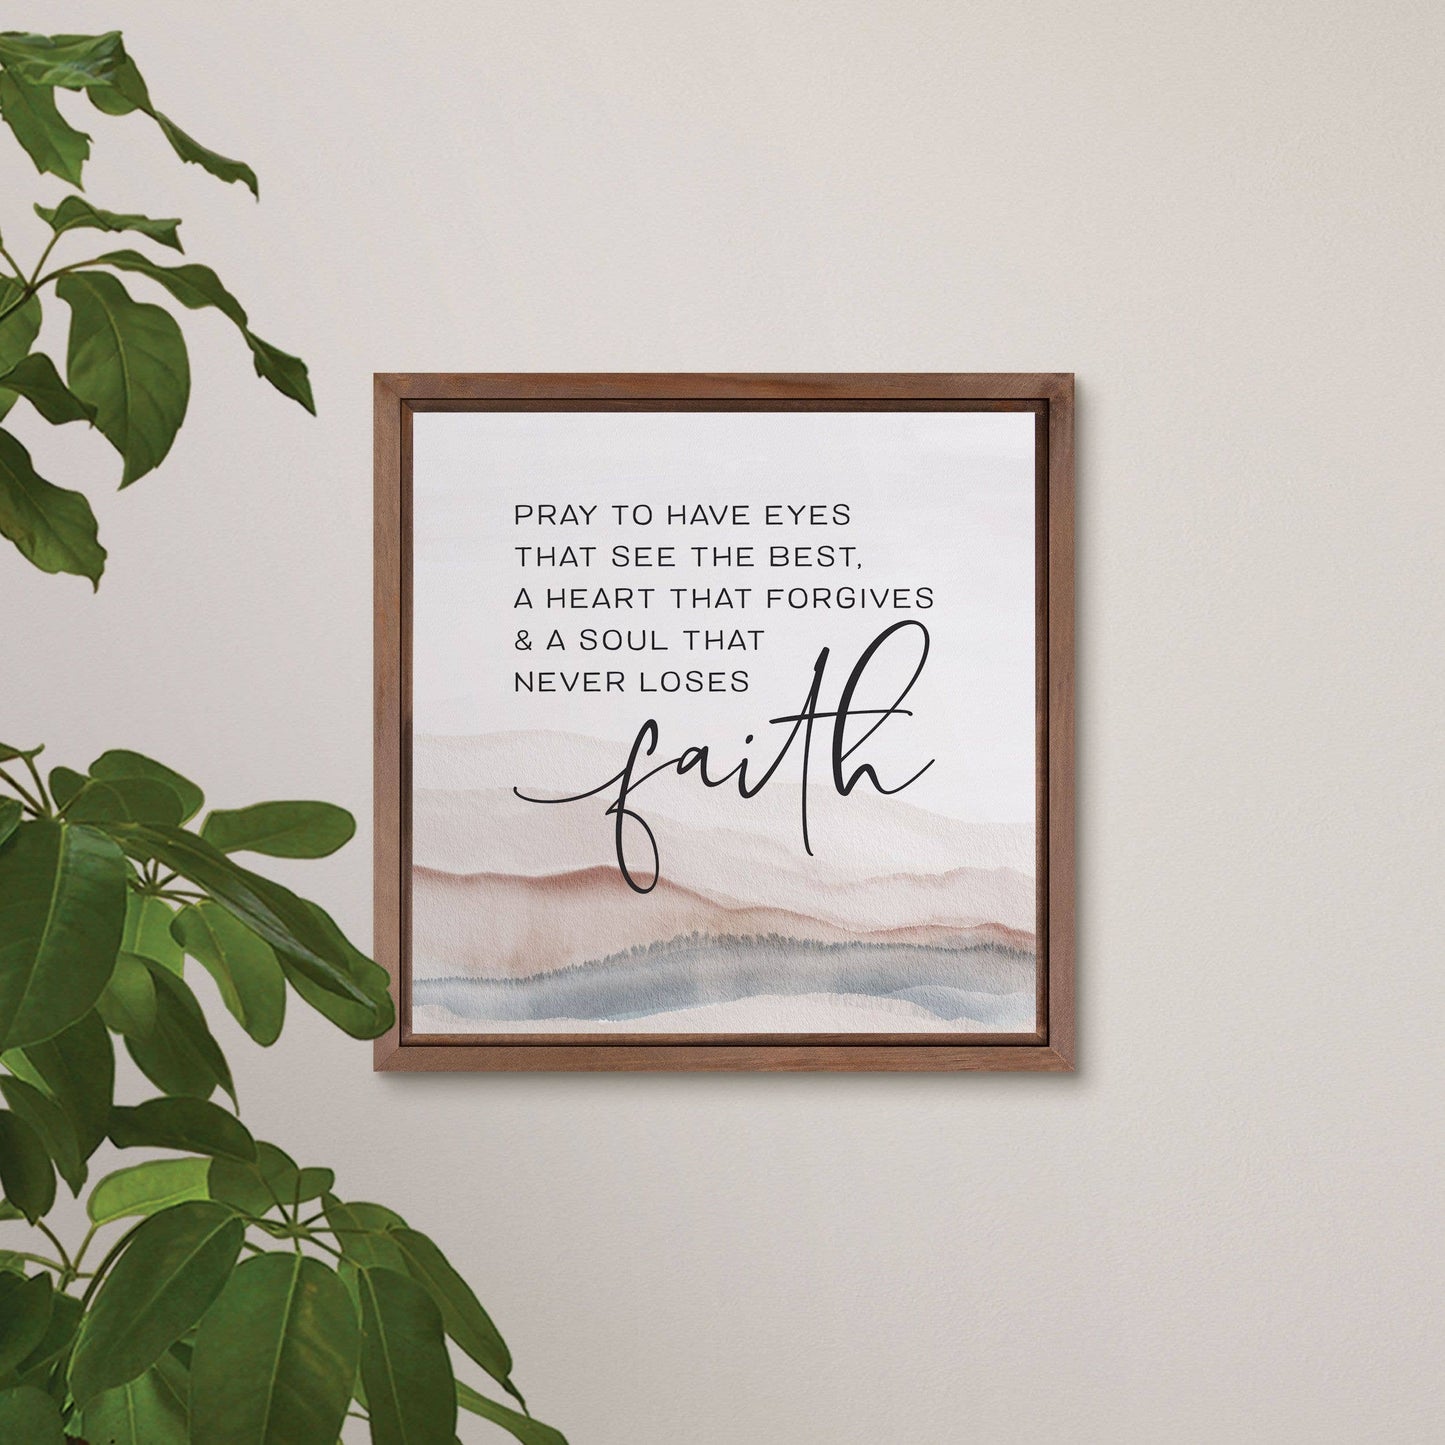 PRAY TO HAVE EYES
THAT SEE THE BEST,
A HEART THAT FORGIVES
& A SOUL THAT
NEVER LOSES
faith